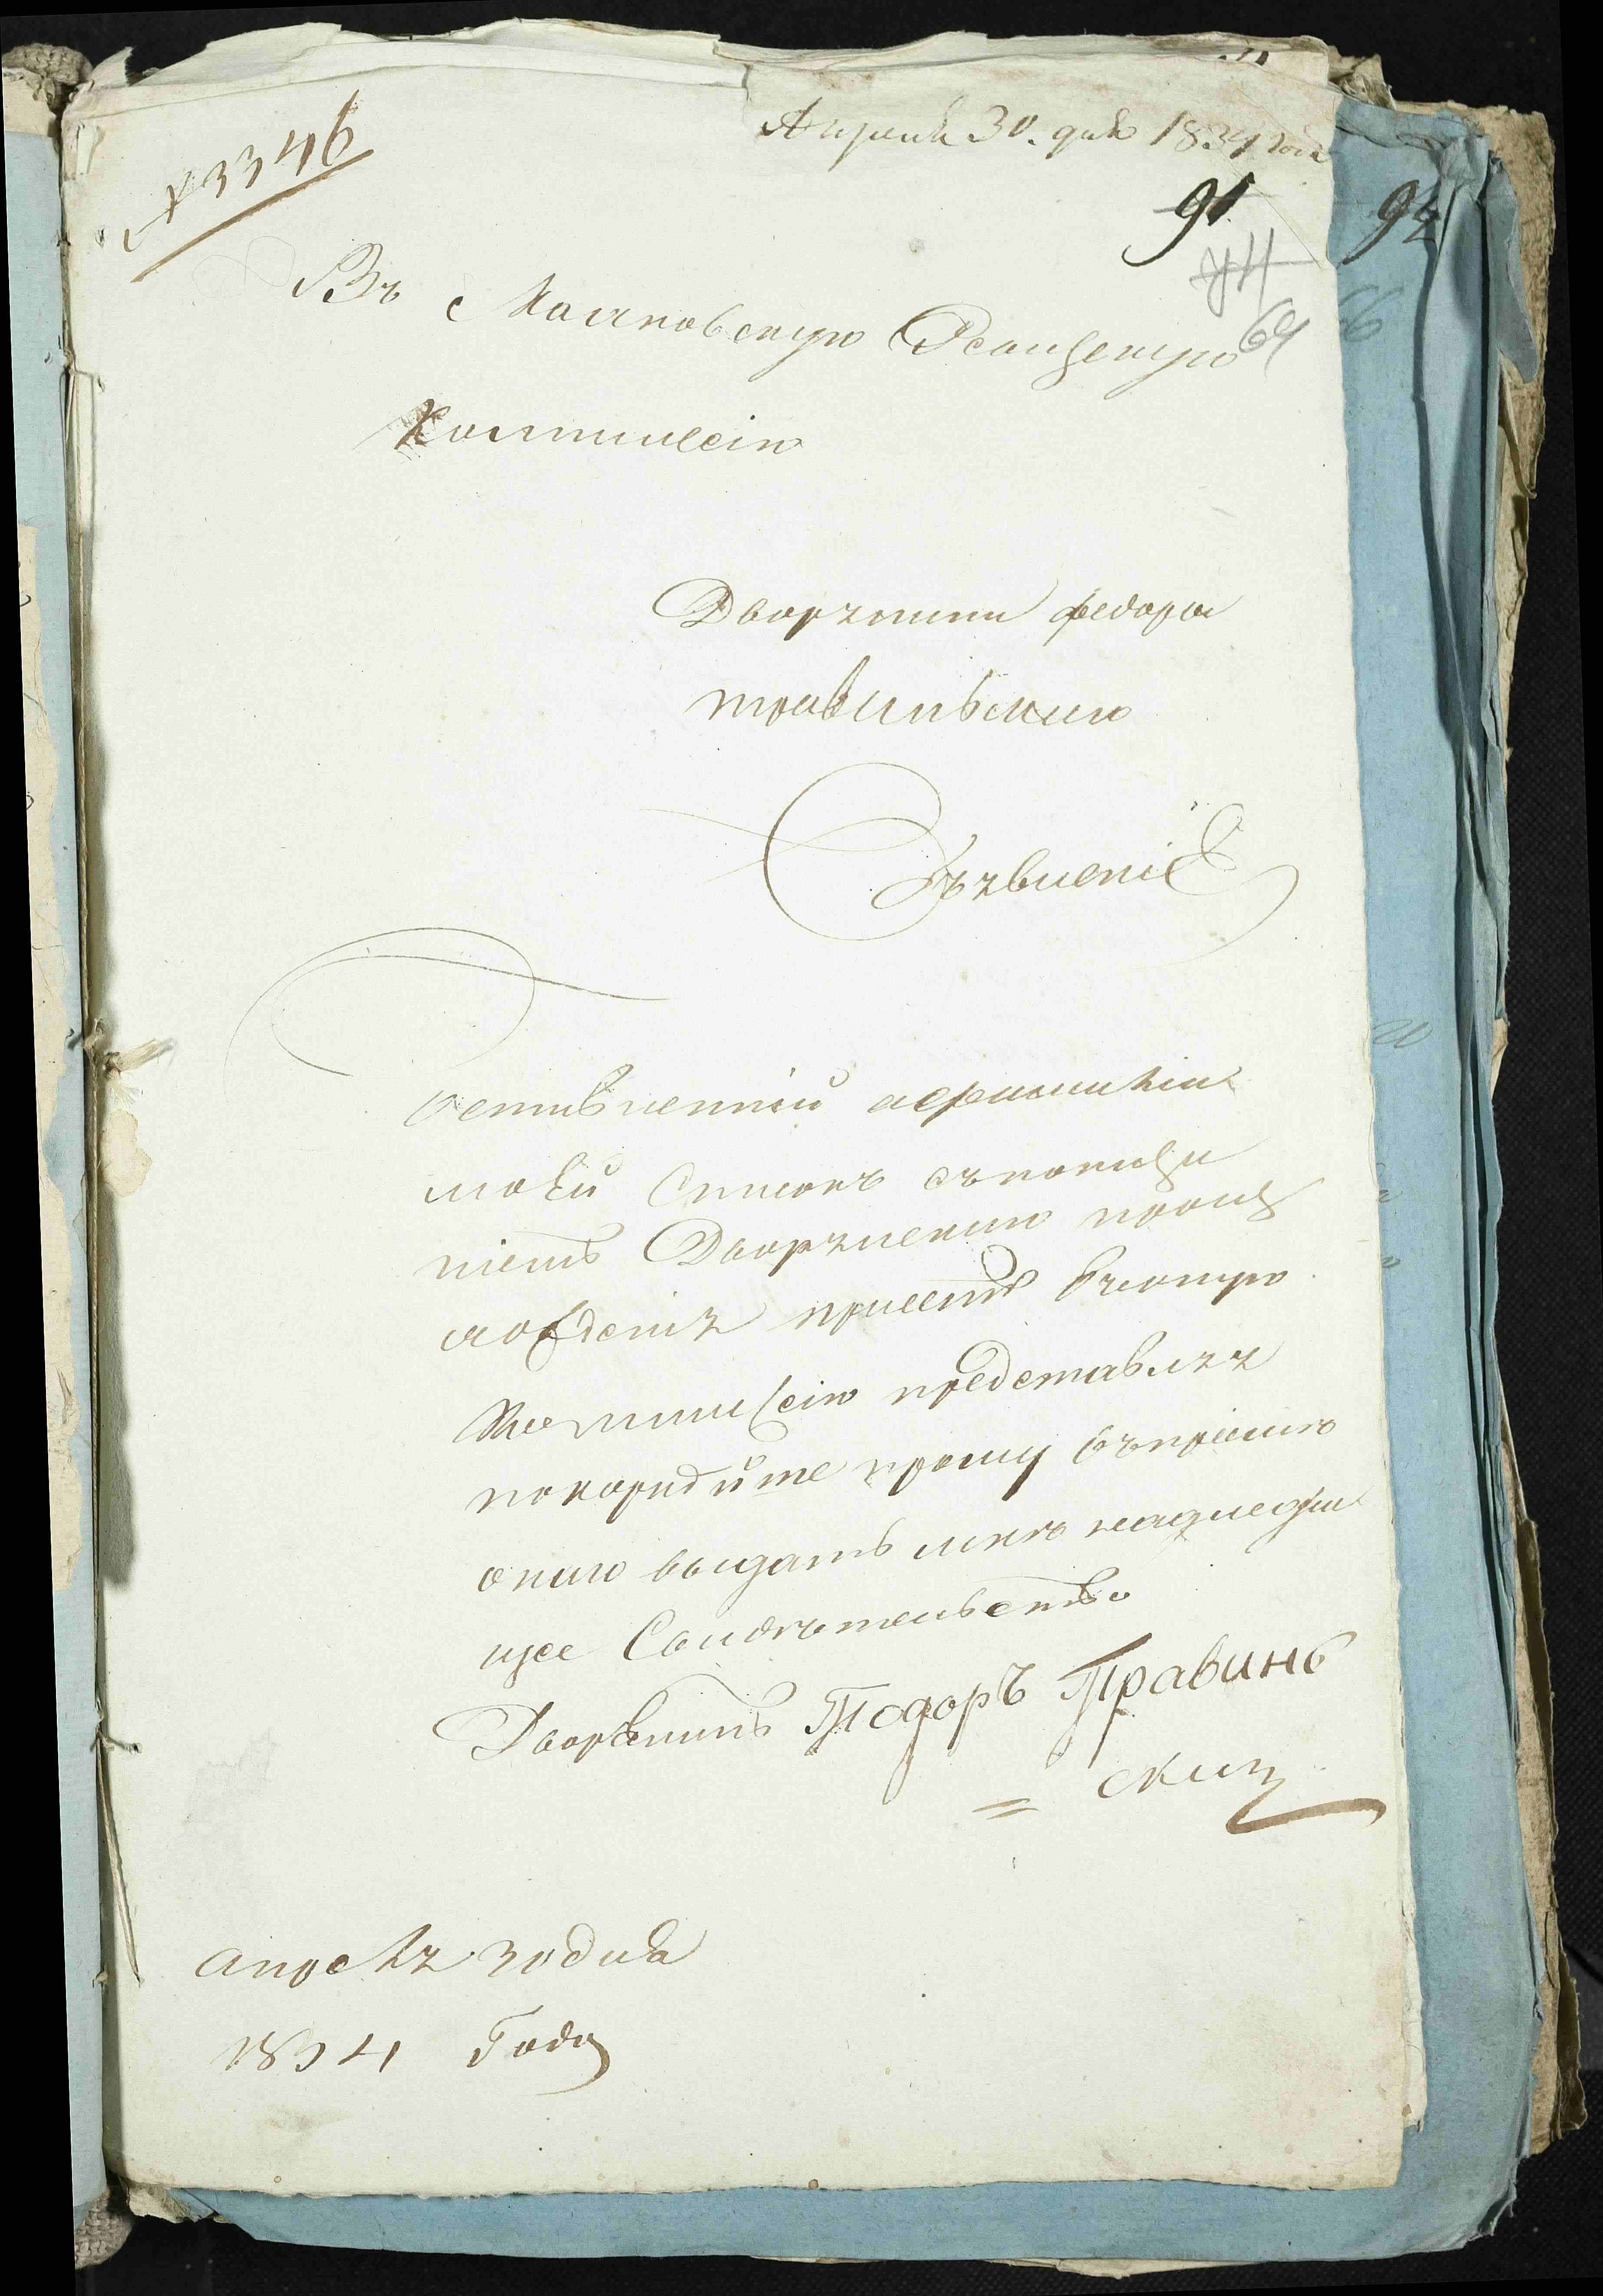 № 3346
Апреля 30. дня 1834 года
91 92
64 66
Въ Махновскую Ревизскую
Коммиссію
Дворянина Федора
Травинскаго
Объявленіе
Составленный о фамиліи
моей Списокъ съ показа
ніемъ Дворянскаго проис
хожденія при семъ въ оную
Коммиссію представляя
покорнейше прошу въ пріеме
онаго выдать мне надлежа
щее Свидѣтельство
Дворянинъ Тодоръ Травинь
= ский
апреля 30 дня
1834 Года